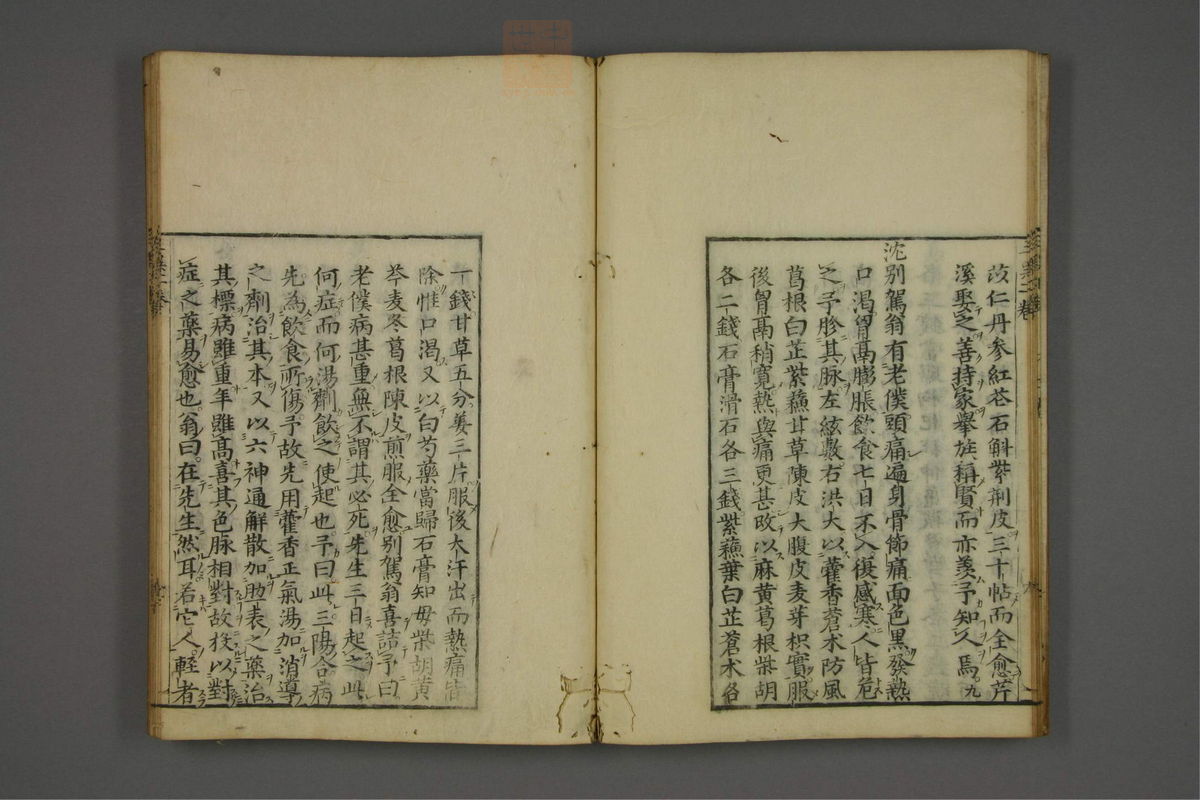 苡仁丹參紅花石斛紫荆皮三十帖而全愈芹
溪娶之善持家擧族稱賢而亦羨予知人焉九
沈別駕翁有老僕頭痛遍身骨節痛面色黑發熱
口渴胃鬲膨脹飲食七日不入復感寒人皆危
之予胗其脉左絃數右洪大以藿香蒼朮防風
葛根白芷紫蘓甘草陳皮大腹皮麦芽枳實服
後胃鬲稍寬熱與痛更甚改以麻黄葛根柴胡
各二錢石膏滑石各三錢紫蘓葉白芷蒼朮各
一錢甘草五分姜三片服後大汗出而熱痛皆
除惟口渴又以白芍藥當歸石膏知毋柴胡黄
芩麦冬葛根陳皮煎服全愈別駕翁喜詰予曰
老僕病甚重無不謂其必死先生三日起之此
何症而何湯劑飲之使起也予曰此三陽合病
先為飲食所傷予故先用藿香正氣湯加消導
之劑治其本又以六神通解散加觔表之藥治
其標病雖重年雖髙喜其色脉相對故投以對
症之藥易愈也翁曰在先生然耳若它人輕者